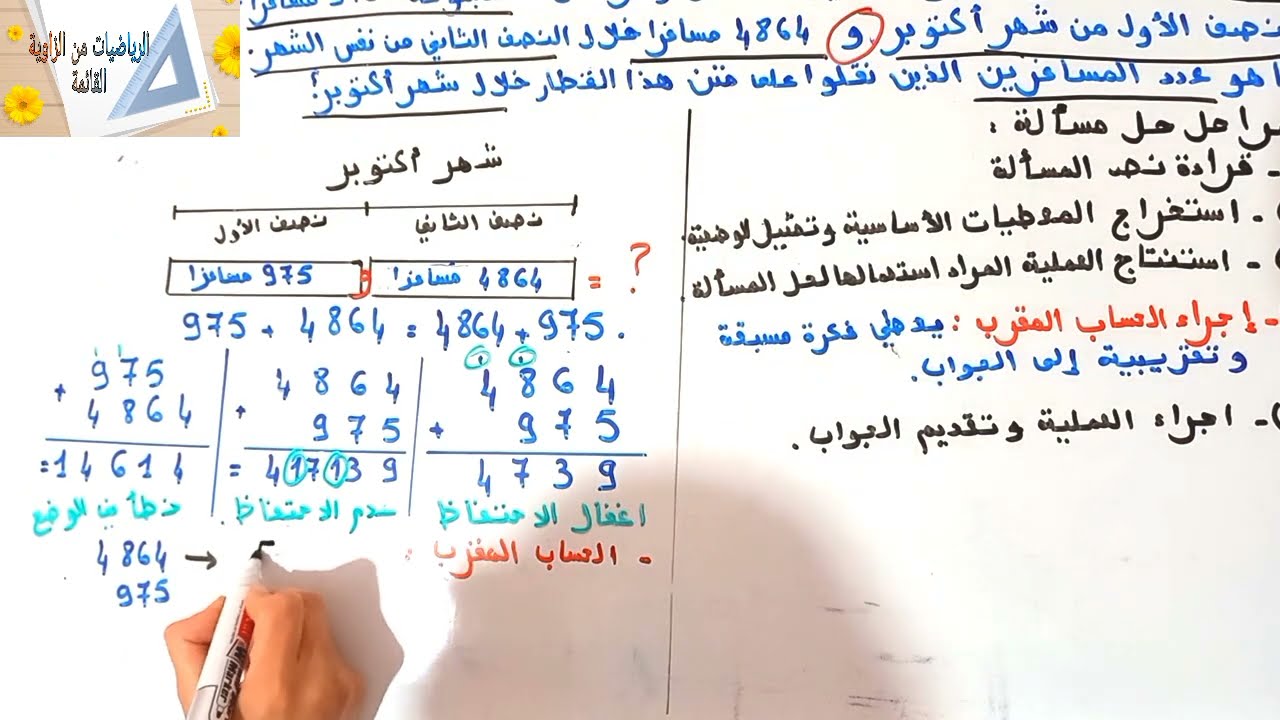 الرياضيات من الزاوية
القائمة
نصف الأول من شهر أكتوبر و 4864 مسافرا خلال النصف الثاني من نفس الشهر.
ا هو عدد المسافرين الذين نقلوا على متن هذا القطار خلال شهر أكتوبر؟
راحل حل مسألة :
- قراءة نص المسألة
- استخراج المعطيات الأساسية وتمثيل الوضعية
- استنتاج العملية المراد استعمالها لحل المسألة
- إجراء الحساب المقرب : يعطي فكرة مسبقة
و تقريبية إلى الجواب.
- اجراء العملية وتقديم الجواب .
شهر أكتوبر
نصف الأول نصف الثاني
975 مسافرا و 4864 مسافرا = ?
975 + 4864 = 4864 + 975 .
1 1 1 1
975 4864 4864
+ 4864 + 975 + 975
= 14614 = 417139 4739
خطأ في الوضع عدم الاحتفاظ . اغفال الاحتفاظ
- الحساب المقرب :
4864 → 5
975